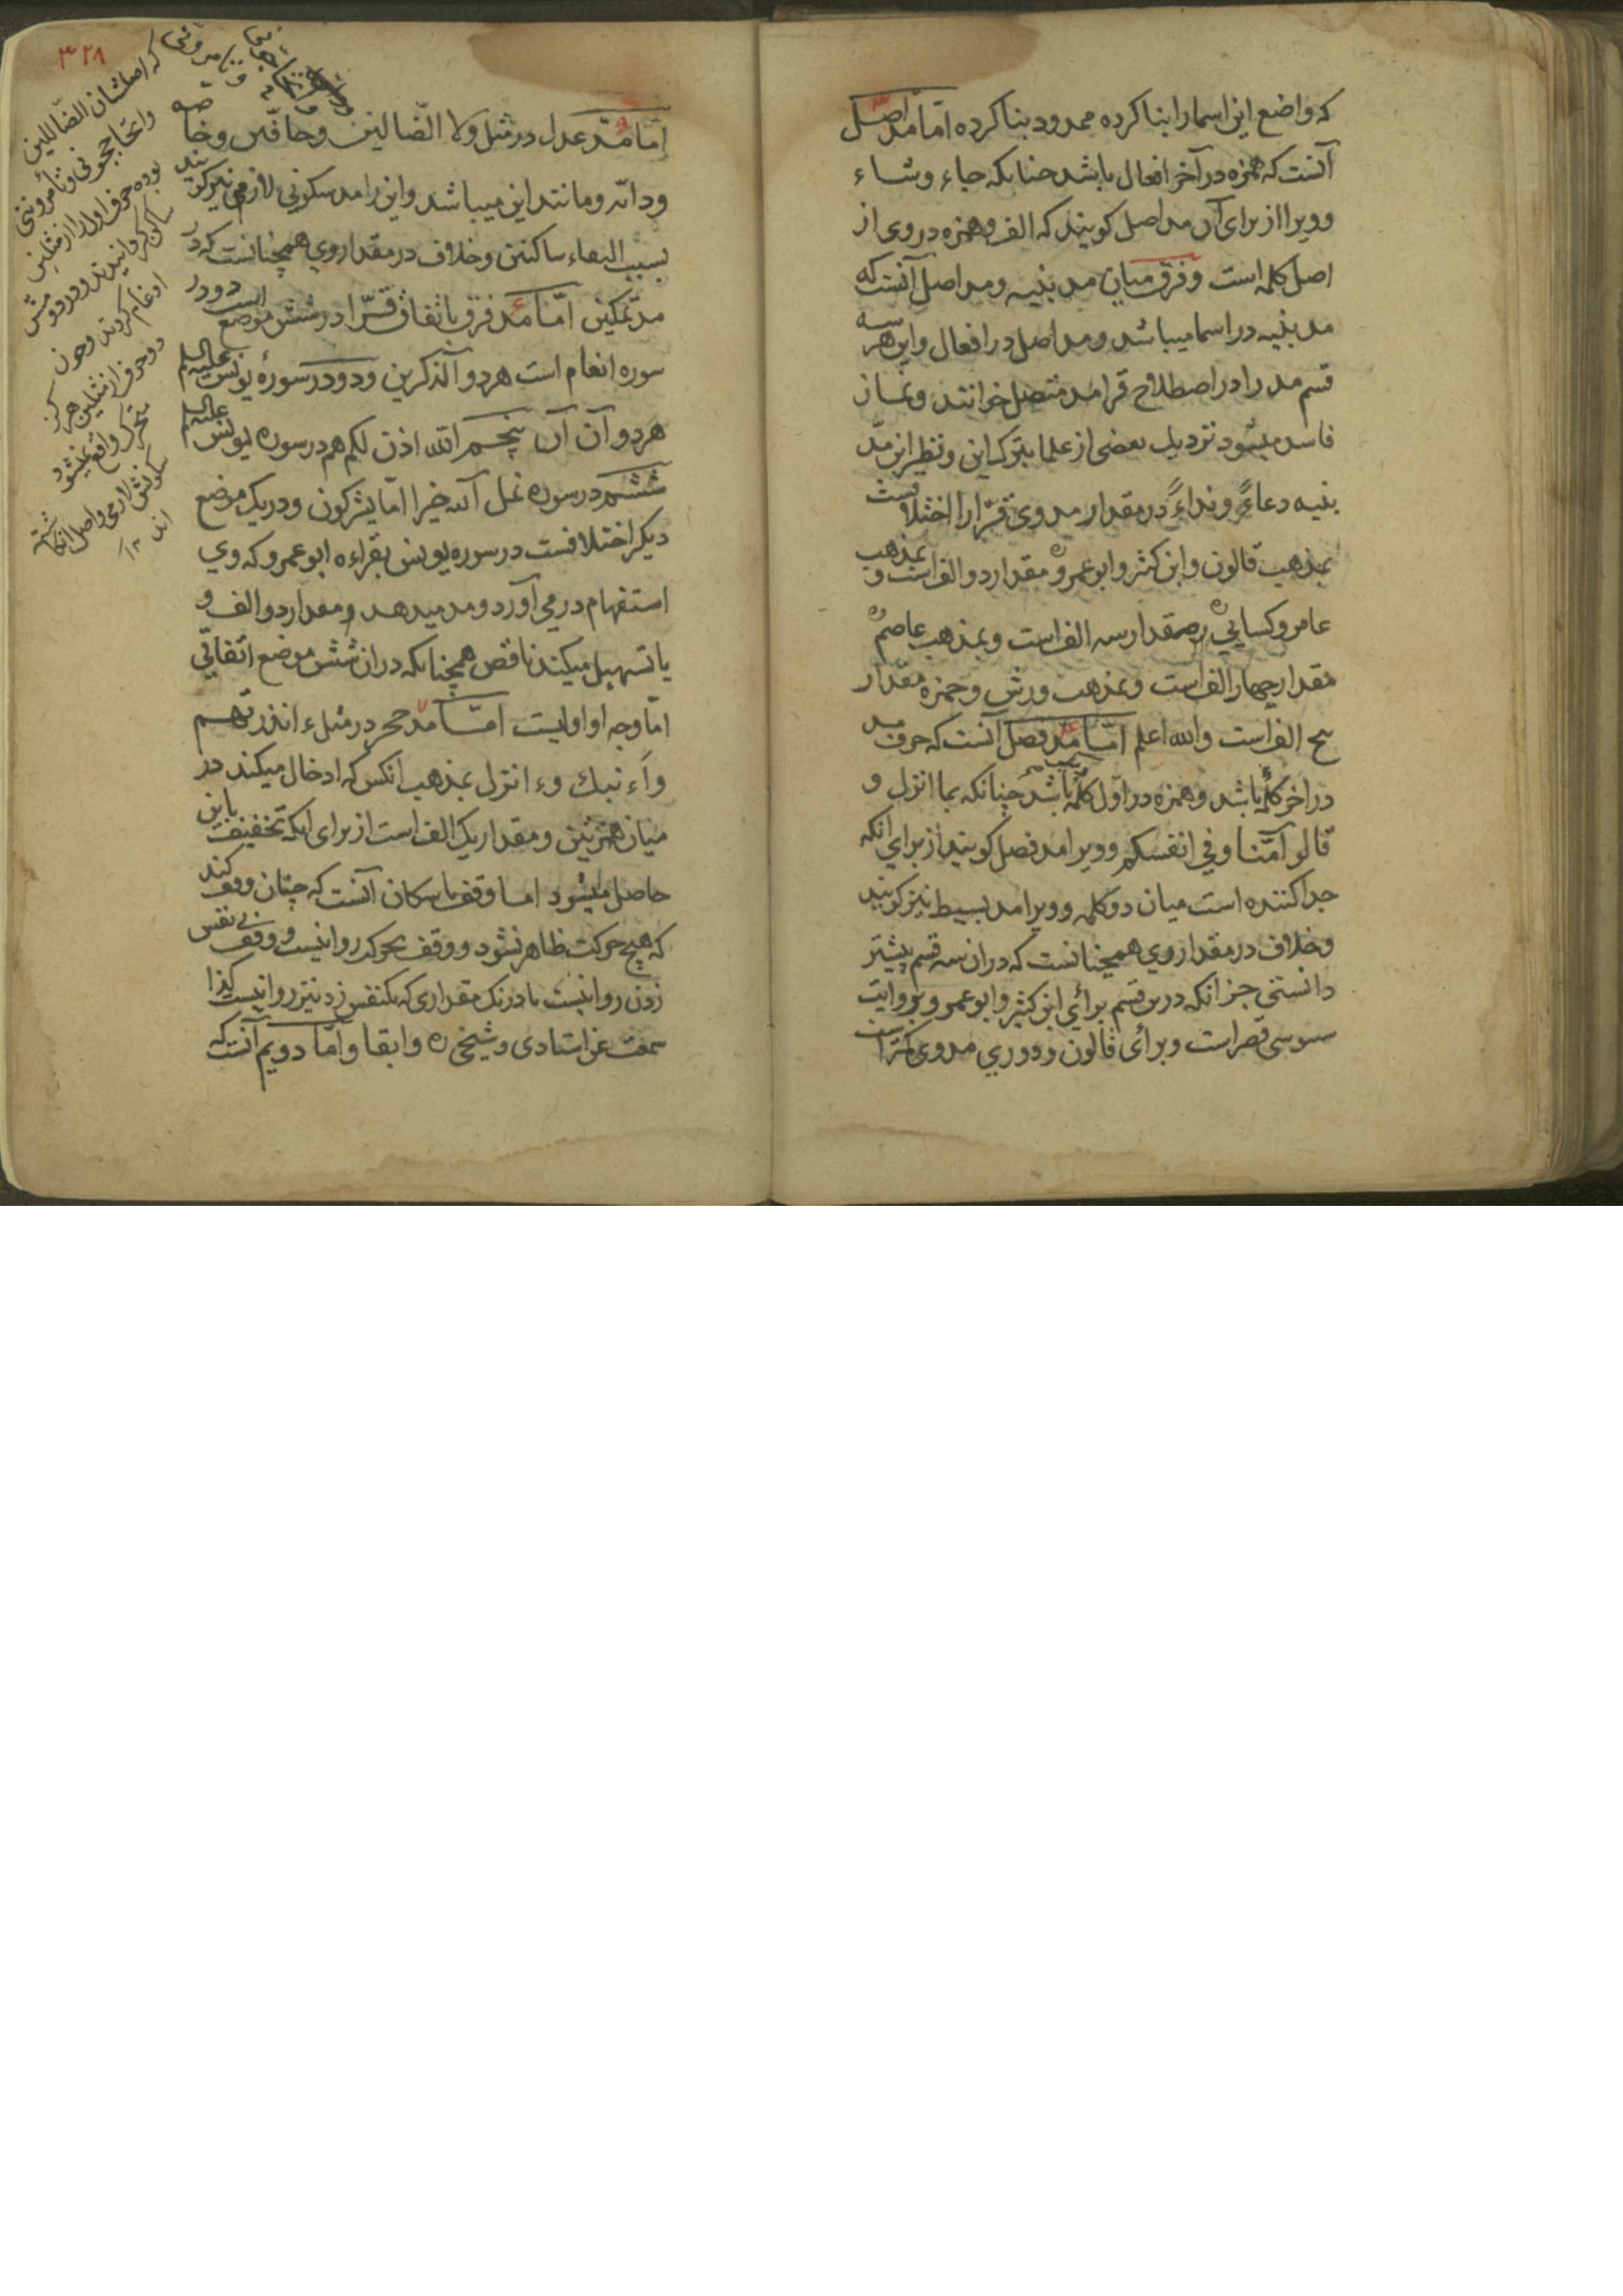 که واضع این اسما را بنا کرده ممدود بنا کرده امّا مدّ اصل
آنست که همزه در آخر افعال باشد چنانکه جاء و شاء
و ویرا از برای آن مد اصل کویند که الف و همزه در وی از
اصل کلمه است و فرق میان مد بنیه و مد اصل آنست که
مد بنیه در اسما میباشد و مد اصل در افعال و این هر سه
قسم مد را در اصطلاح قرا مد متصل خوانند و نماز
فاسد میشود نزدیک بعضی از علما بترک این و نظیر این مدّ
بنیه دعاءً و نداءً در مقدار مد وی قرّا را اختلافست
بمذهب قالون و ابن کثیر و ابو عمرو ره مقدار دو الف است و بمذهب
عامر و کسایي ره مقدار سه الف است و بمذهب عاصم ره
مقدار چهار الف است و بمذهب ورش و حمزه مقدار
پنج الف است والله اعلم امّا مدّ فصل آنست که حرف مد
در اخر کلمه باشد و همزه در اول کلمه باشد چنانکه بما انزل و
قالو آمنّا و في انفسکم و ویرا مد فصل کویند از برای انکه
جدا کننده است میان دو کلمه و ویرا مد بسیط نیز کویند
و خلاف در مقدار وي همچنانست که در ان سه قسم پیشتر
دانستی جز انکه درین قسم برای ابن کثیر و ابو عمرو بروایت
سوسی قصر است و برای قالون و دوري مد وی کمتر است
۳۲۸
امّا مدّ عدل در مثل ولا الضّالین و حافّین و خاصه
و دابّه و مانند این میباشد و این را مد سکوني لازمي نیز کویند
بسبب التقاء ساکنین و خلاف در مقدار وي همچنانست که در
مدّ تمکین امّا مد فرق باتفاق قرّا در شش موضع است دو در
سوره انعام است هر دو آلذکرین و دو در سورهٔ یونس علیه السلم
هر دو آلآن پنجم آلله اذن لکم هم در سوره یونس علیه السلم
ششم در سوره نمل آلله خیرا امّا یشرکون و در یک موضع
دیکر اختلافست در سوره یونس بقراءه ابو عمرو که وي
استفهام در می آورد و مد میدهد و مقدار دو الف و
یا تسهیل میکند ناقص همچنانکه در ان شش موضع اتفاقي
امّا وجه او اولیست امّا مد حجر در مثل ء انذرتهم
و ا ءنبئک و ء انزل بمذهب انکس که ادخال میکند در
میان همزتین و مقدار یک الف است از برای انکه تخفیف باین
حاصل میشود اما وقف باسکان آنست که چنان وقف کند
که هیچ حرکت ظاهر نشود و وقف بحرکت روا نیست و وقف بی نفس
زدن روا نیست با درنک مقداری که یکنفس زدنیتر روا نیست کذا
سمعت عن استادی و شیخی ره و ابقا و امّا دویم آنست که
که اصلشان الضاللین
و اتحاججونی و تأمروننی
بوده حرف اول را از مثلین
ساکن کردانیدند و در دومش
ادغام کردند و چون
دو حرف از مثلین هرکز
متحرک واقع نمیشود
سکونش لازمی و اصل انکاشته
اند ۱۲